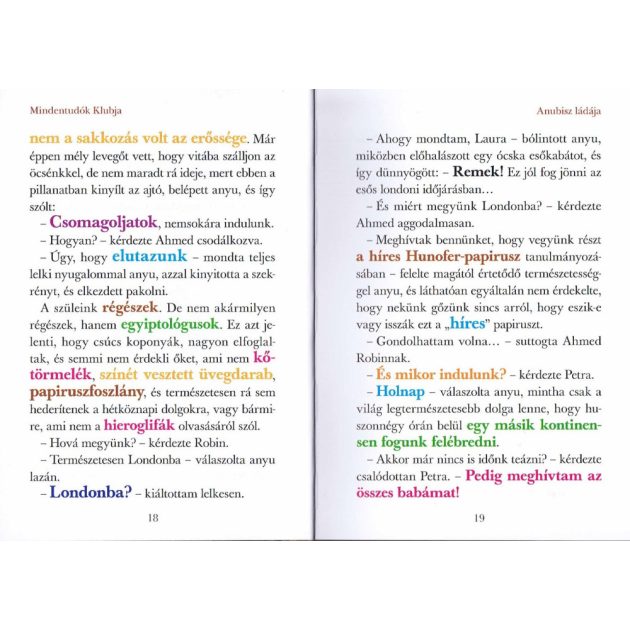 Mindentudók Klubja
nem a sakkozás volt az erőssége. Már
éppen mély levegőt vett, hogy vitába szálljon az
öcsénkkel, de nem maradt rá ideje, mert ebben a
pillanatban kinyílt az ajtó, belépett anyu, és így
szólt:
– Csomagoljatok, nemsokára indulunk.
– Hogyan? – kérdezte Ahmed csodálkozva.
– Úgy, hogy elutazunk – mondta teljes
lelki nyugalommal anyu, azzal kinyitotta a szek-
rényt, és elkezdett pakolni.
A szüleink régészek. De nem akármilyen
régészek, hanem egyiptológusok. Ez azt je-
lenti, hogy csúcs koponyák, nagyon elfoglal-
tak, és semmi nem érdekli őket, ami nem kő-
törmelék, színét vesztett üvegdarab,
papiruszfoszlány, és természetesen rá sem
hederítenek a hétköznapi dolgokra, vagy bármi-
re, ami nem a hieroglifák olvasásáról szól.
– Hová megyünk? – kérdezte Robin.
– Természetesen Londonba – válaszolta anyu
lazán.
– Londonba? – kiáltottam lelkesen.
18
Anubisz ládája
– Ahogy mondtam, Laura – bólintott anyu,
miközben előhalászott egy ócska esőkabátot, és
így dünnyögött: – Remek! Ez jól fog jönni az
esős londoni időjárásban…
– És miért megyünk Londonba? – kérdezte
Ahmed aggodalmasan.
– Meghívtak bennünket, hogy vegyünk részt
a híres Hunofer-papirusz tanulmányozá-
sában – felelte magától értetődő természetesség-
gel anyu, és láthatóan egyáltalán nem érdekelte,
hogy nekünk gőzünk sincs arról, hogy eszik-e
vagy isszák ezt a „híres” papiruszt.
– Gondolhattam volna… – suttogta Ahmed
Robinnak.
– És mikor indulunk? – kérdezte Petra.
– Holnap – válaszolta anyu, mintha csak a
világ legtermészetesebb dolga lenne, hogy hu-
szonnégy órán belül egy másik kontinen-
sen fogunk felébredni.
– Akkor már nincs is időnk teázni? – kérdezte
csalódottan Petra. – Pedig meghívtam az
összes babámat!
19